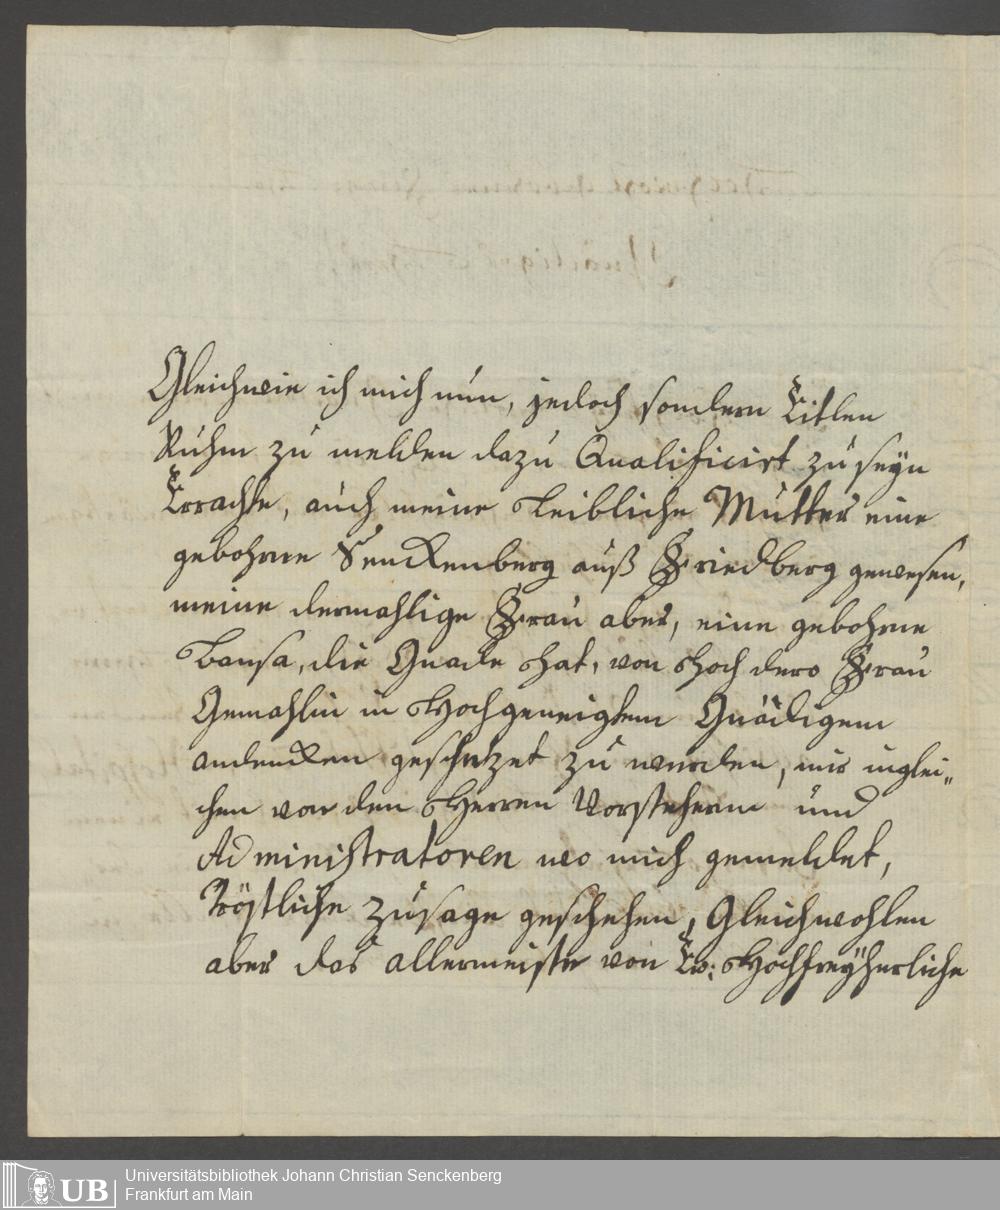 Gleichwie ich mich nun, jedoch sondern Eitlen
Ruhm zu melden dazu Qualificirt zu seyn
Erachte, auch meine Leibliche Mutter eine
gebohrne Senckenberg auß Friedberg gewesen,
meine dermahlige Frau aber, eine gebohrne
Bansa, die Gnade hat, von Hoch dero Frau
Gemahlin in Hochgeneigtem Gnädigem
andencken geschezet zu werden, mir inglei„
chen von den Herren Vorstehern und
Administratoren wo mich gemeldet,
Tröstliche zusage geschehen, Gleichwohlen
aber das allermeiste von Ew: Hochfreÿherliche
UB
Universitätsbibliothek Johann Christian Senckenberg
Frankfurt am Main